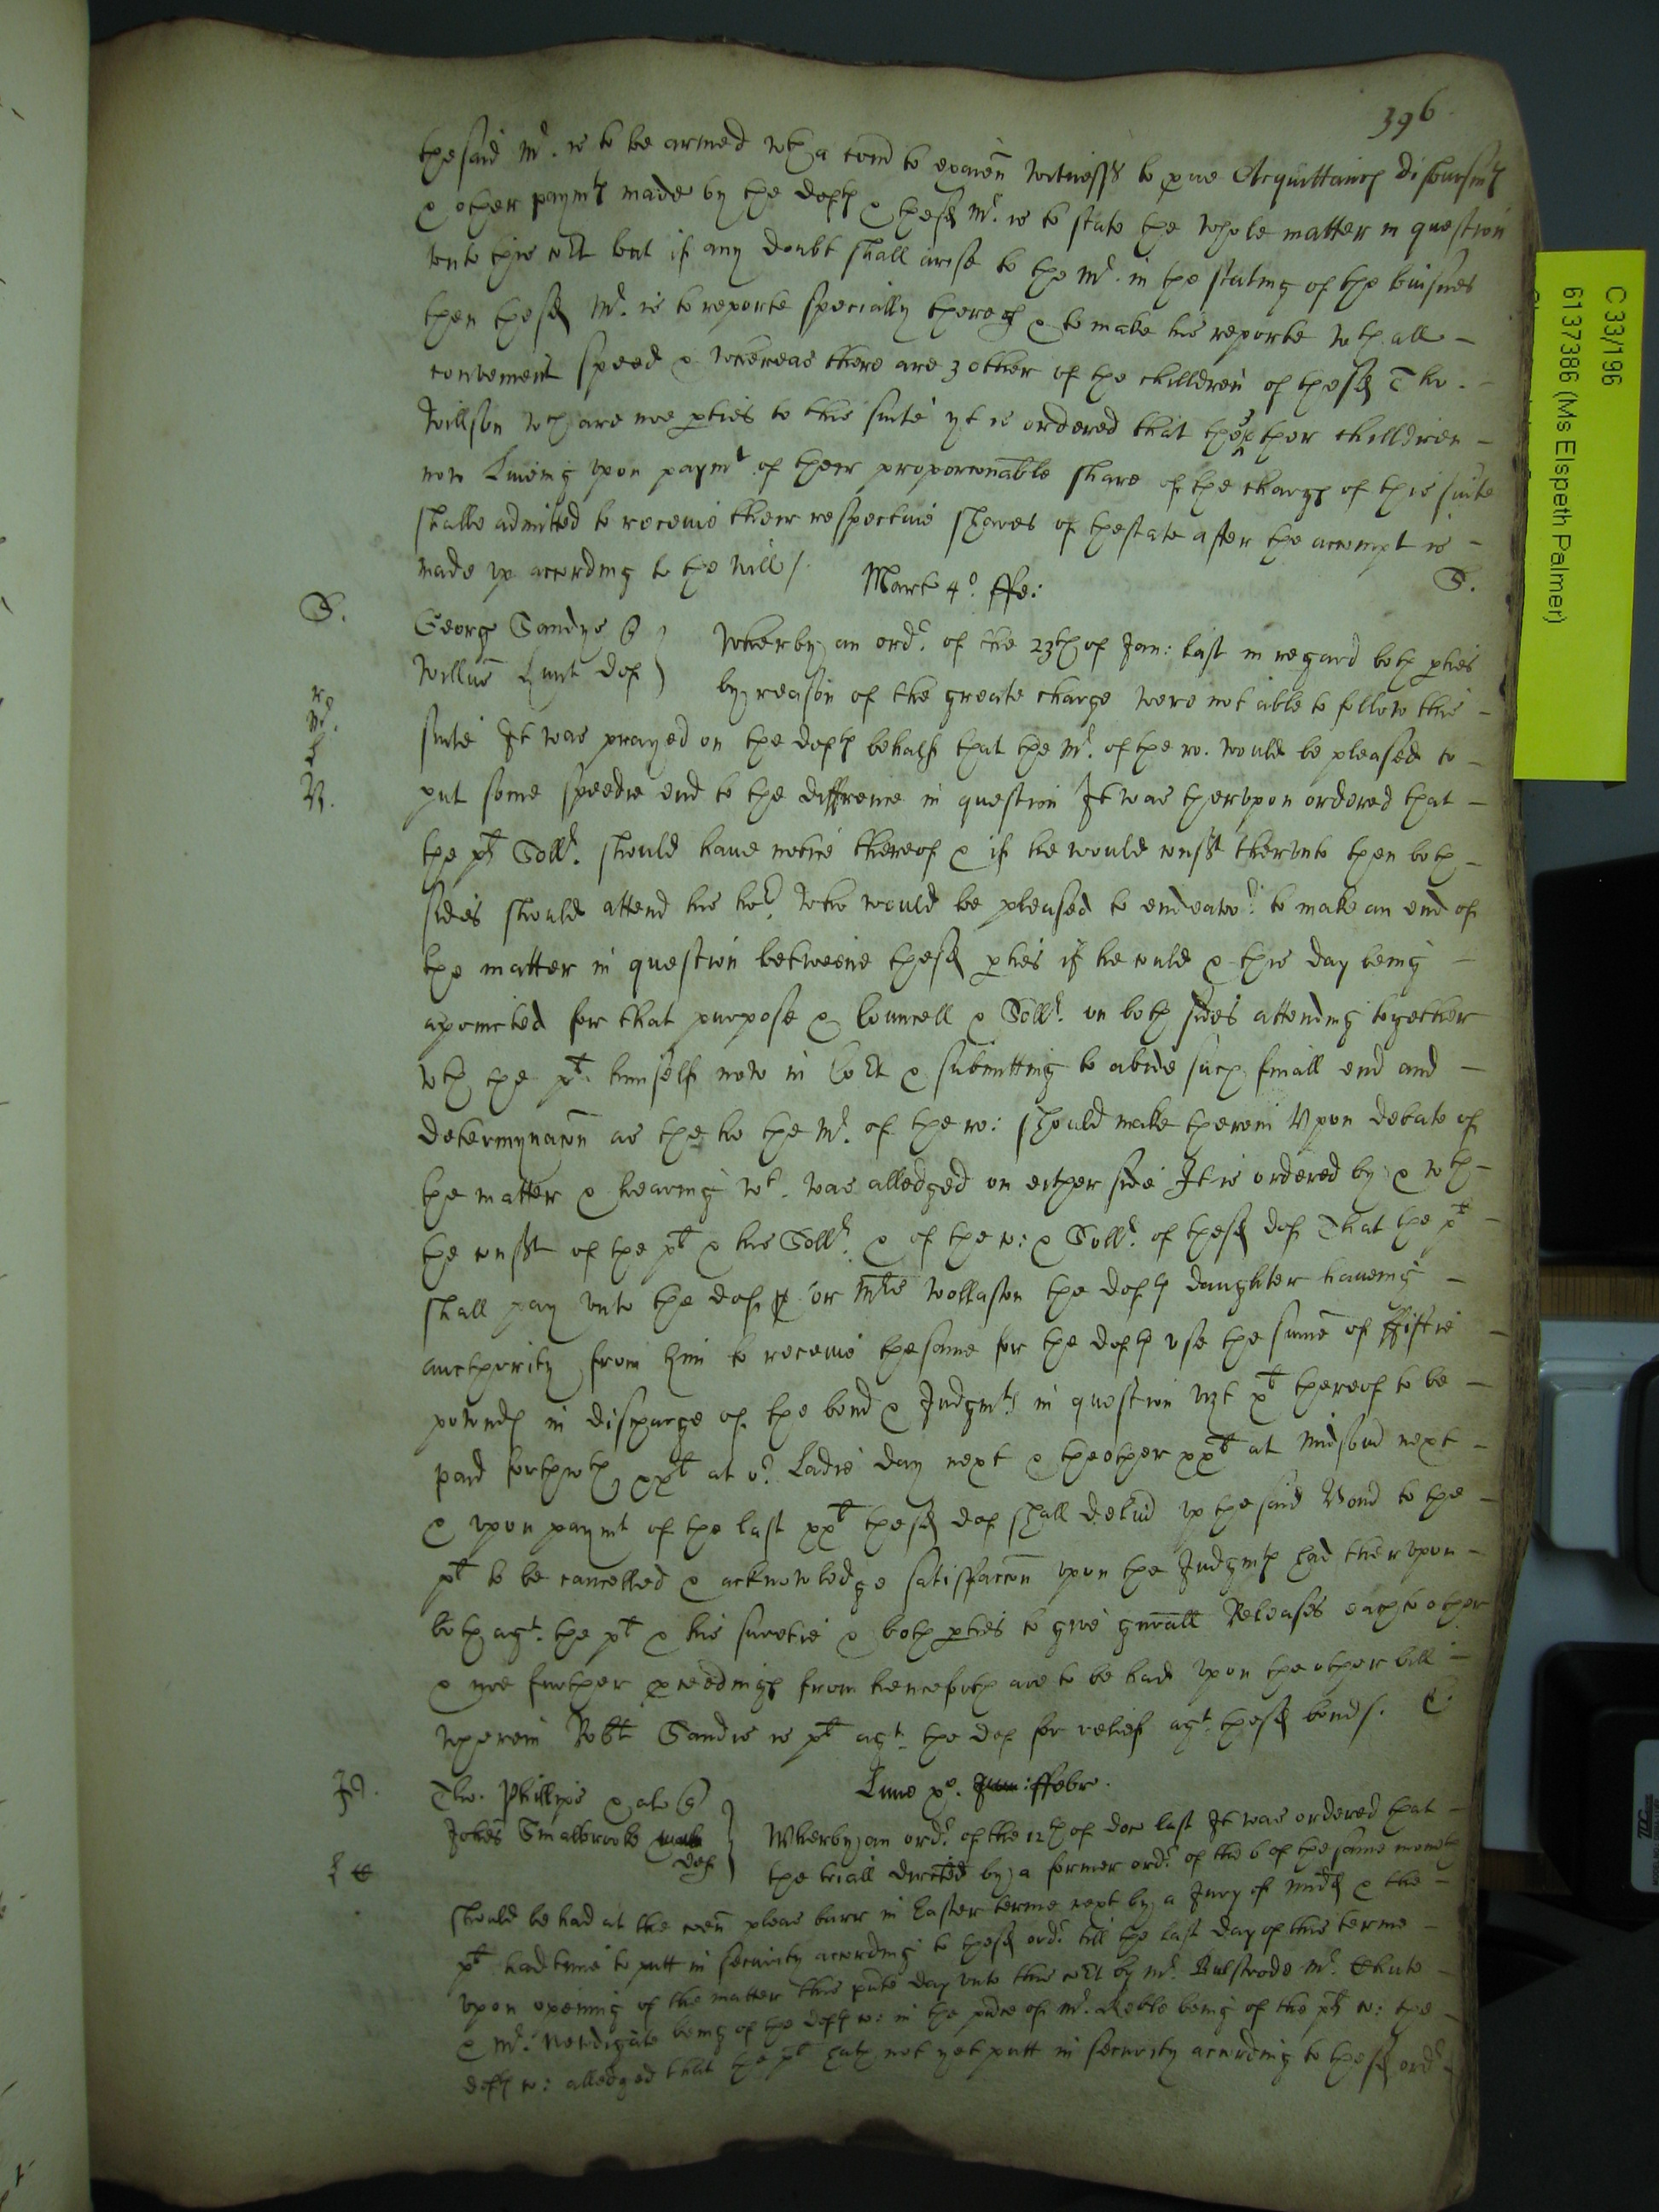 396
the said Mr. is to be armed wth a com̄ to exam̄ witnesses to prve Acquittancs disbursmts
& other paymts made by the defts & the sd Mr. is to state the whole matter in question
unto this cort but if any doubt shall arise to the Mr. in the stating of the buisnes
then the sd Mr. is to reporte specially thereof & to make his reporte wth all –
convenient speed & whereas there are 3 other of the children of the sd Tho. –
Willson wch are noe pties to this suite yt is ordered that the 3 other children –
now Liveing upon paymt of their proporconable share of the chargs of this suite
shalbe admitted to receive their respective shares of thestate after the accompt is –
made up according to the will /.
S.
Mart 4o. ffe:
S.
Georg Sandys q
Willm̄ Hunt def
Wherby an ordr. of the 23th of Jan: last in regard both pties
by reason of the greate charge were not able to follow this –
suite It was prayed on the defts behalf that the Mr. of the ro. would be pleased to –
put some speedie end to the diffrence in question It was therupon ordered that –
the plts Sollr. should have notice thereof & if he would consent therunto then both –
sides should attend his hor. who would be pleased to endeavor. to make an end of
the matter in question betweene the sd pties if he could & this day being –
apointed for that purpose & Councell & Sollr. on both sides attending together
wth the plt. himself now in Cort & submitting to abide such finall end and –
determynacon as the ho the Mr. of the ro: should make therein Upon debate of
the matter & hearing wt. was alledged on either side It is ordered by & wth –
the consent of the plt & his Sollr. & of the co: & Sollr. of the sd def That the plt –
shall pay unto the def or Mris Wollaston the defts daughter haveing –
aucthority from him to receive the same for the defts use the sum̄e of ffiftie –
pownds in discharge of the bond & Judgmts in question vizt xli thereof to be –
paid forthwth xxli at or. Ladie day next & the other xxli at Midsom̄ next –
& upon paymt of the last xxli the sd def shall delivr up the said Bond to the –
plt to be cancelled & acknowledge satisfaccon upon the Judgmts had therupon –
both agt. the plt & his suretie & both pties to give gnrall Releases each to other
& noe further pceedings from henceforth are to be had upon the other bill –
wherein Robt Sandis is plt agt. the def for relief agt. the sd bonds /.
Lune po. Jan: ffebr.
Tho. Phillips & al q
Johes Smalbrooke
def
Wherby an ordr. of the 12th of Dec last It was ordered that –
the triall directed by a former ordr. of the 6 of the same moneth
should be had at the com̄ pleas barr in Easter terme next by a Jury of Midd & the –
plt had time to putt in security according to the sd ordr. till the last day of this terme –
upon opening of the matter this pnte day unto this cort by Mr. Bulstrode Mr. Chute –
& Mr. Newdigate being of the defts co: in the pnce of Mr. Keble being of the plts co: the –
defts co: alledged that the plt hath not yet putt in security according to the sd ordr –
C 33/196
6137386 (Ms Elspeth Palmer)